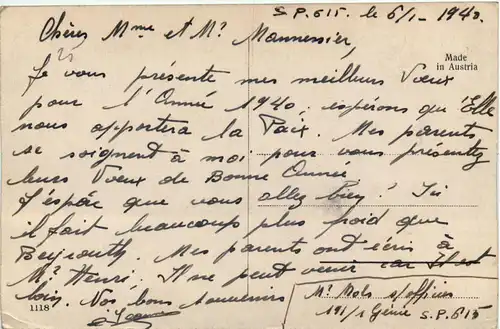 S.P. 615. le 6/1- 1940.
Chères Mme et Mr
Made
in Austria
Je vous présente mes meilleurs Voeux
pour l'Année 1940. espérons qu'Elle
nous apportera la Paix. Mes parents
se soignent à moi pour vous présenter
leurs Voeux de Bonne Année
J'espèc que vous allez bien! Ici
il fait beaucoup plus froid que
Beyrouth. Mes parents ont écris à
Mr Henri, Il ne peut venir car Il est
loin. Vos bons souvenirs
1118
Mr s/officier
191/1 Génie S.P. 615